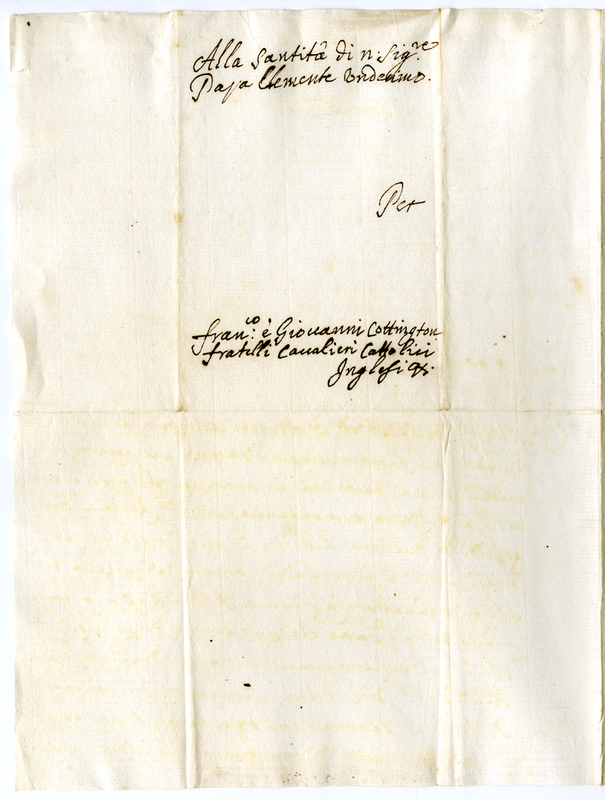 Alla Santità di n: Sig.re
Papa Clemente Undecimo.
Per
fran.co è Giouanni Cottington
fratelli Caualieri Cattolici
Inglesi &c: